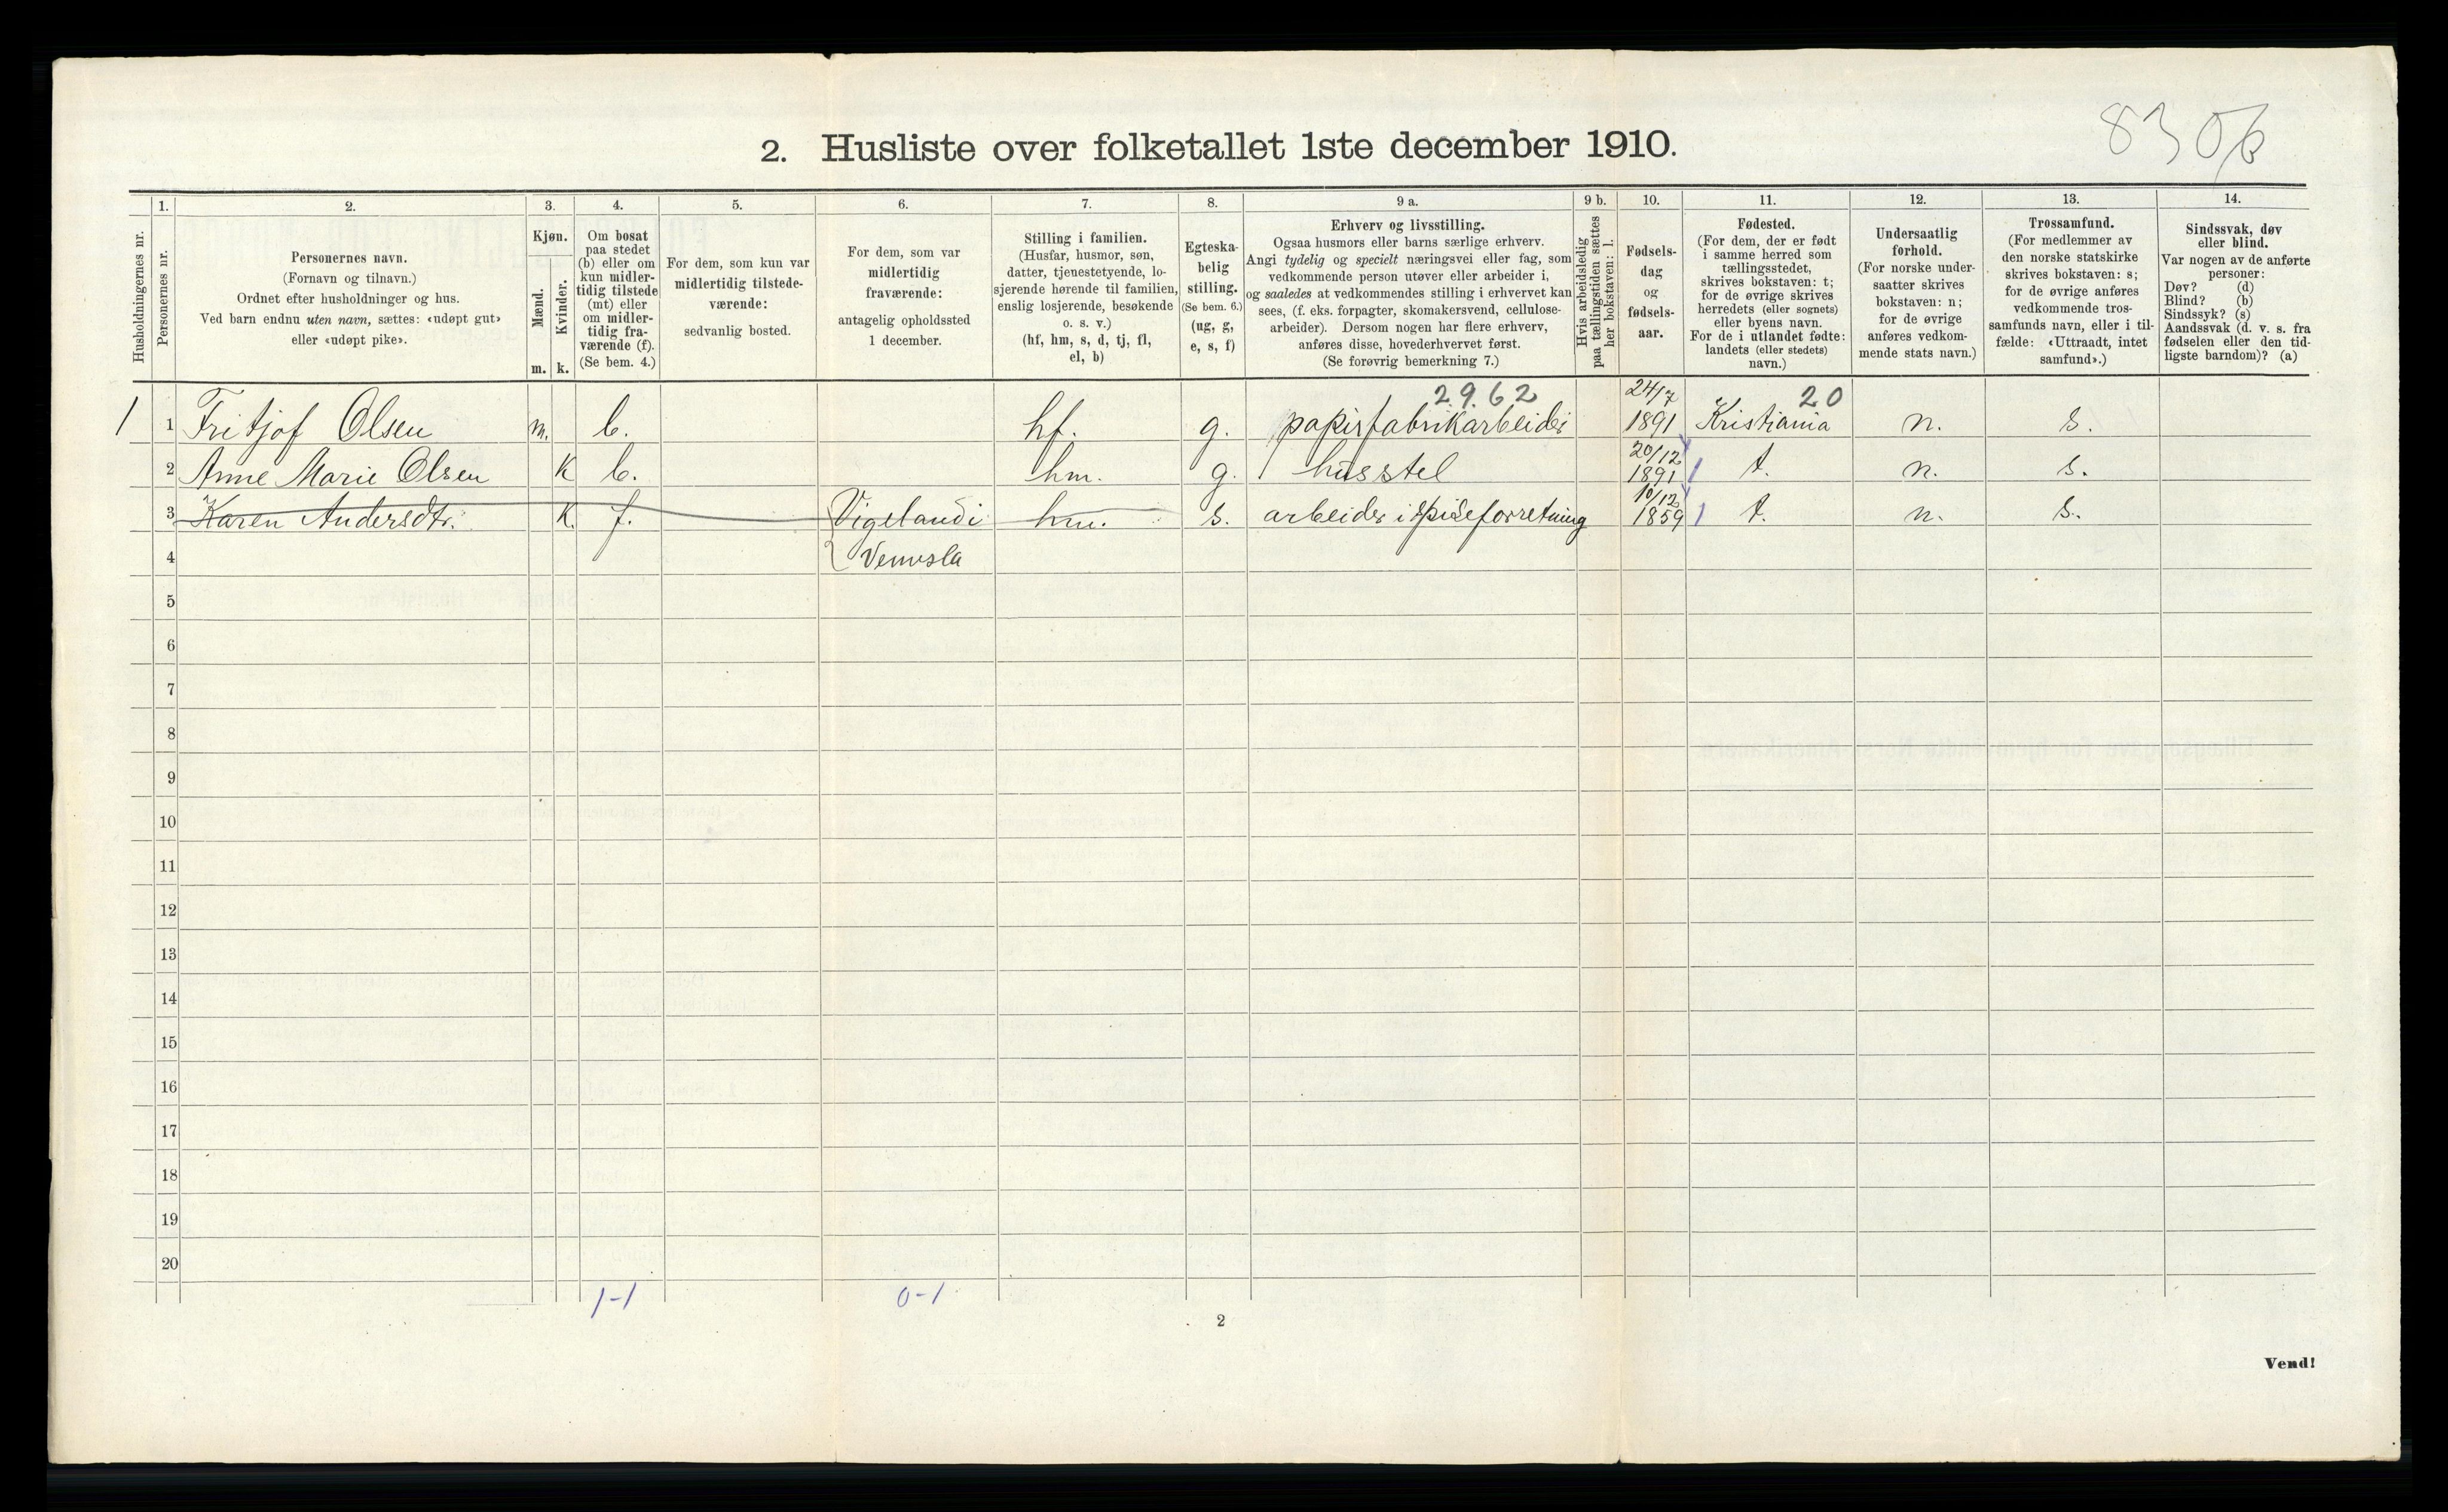 8306
2. Husliste over folketallet 1ste december 1910.
Husholdningernes nr.
1.
Personernes nr.
2.
Personernes navn.
(Fornavn og tilnavn.)
Ordnet efter husholdninger og hus.
Ved barn endnu uten navn, sættes: «udøpt gut»
eller «udøpt pike».
3.
Kjøn.
Mænd.
Kvinder.
m. k.
4.
Om bosat
paa stedet
(b) eller om
kun midler-
tidig tilstede
(mt) eller
om midler-
tidig fra-
værende (f).
(Se bem. 4.)
5.
For dem, som kun var
midlertidig tilstede-
værende:
sedvanlig bosted.
6.
For dem, som var
midlertidig
fraværende:
antagelig opholdssted
1 december.
7.
Stilling i familien.
(Husfar, husmor, søn,
datter, tjenestetyende, lo-
sjerende hørende til familien,
enslig losjerende, besøkende
o. s. v.)
(hf, hm, s, d, tj, fl,
el, b)
8.
Egteska-
belig
stilling.
(Se bem. 6.)
(ug, g,
e, s, f)
9 a.
Erhverv og livsstilling.
Ogsaa husmors eller barns særlige erhverv.
Angi tydelig og specielt næringsvei eller fag, som
vedkommende person utøver eller arbeider i,
og saaledes at vedkommendes stilling i erhvervet kan
sees, (f. eks. forpagter, skomakersvend, cellulose-
arbeider). Dersom nogen har flere erhverv,
anføres disse, hovederhvervet først.
(Se forøvrig bemerkning 7.)
9 b.
Hvis arbeidsledig
paa tællingstiden sættes
her bokstaven: l.
10.
Fødsels-
dag
og
fødsels-
aar.
11.
Fødested.
(For dem, der er født
i samme herred som
tællingsstedet,
skrives bokstaven: t;
for de øvrige skrives
herredets (eller sognets)
eller byens navn.
For de i utlandet fødte:
landets (eller stedets)
navn.)
12.
Undersaatlig
forhold.
(For norske under-
saatter skrives
bokstaven: n;
for de øvrige
anføres vedkom-
mende stats navn.)
13.
Trossamfund.
(For medlemmer av
den norske statskirke
skrives bokstaven: s;
for de øvrige anføres
vedkommende tros-
samfunds navn, eller i til-
fælde: «Uttraadt, intet
samfund».)
14.
Sindssvak, døv
eller blind.
Var nogen av de anførte
personer:
Døv? (d)
Blind? (b)
Sindssyk? (s)
Aandssvak (d. v. s. fra
fødselen eller den tid-
ligste barndom)? (a)
2962 24/7 20
1 1 Fritjof Olsen m. b. hf. g. papirfabrikarbeider 1891 Kristiania n. s.
20/12
2 Anne Marie Olsen K b. hm. g. husstel 1891 t. n. s.
10/12
3 Karen Andersdtr. K. f. Vigeland i hm. s. arbeider i spiseforretning 1859 t. n. s.
4 Vennesla
5
6
7
8
9
10
11
12
13
14
15
16
17
18
19
20
1-1 0-1
2
Vend!